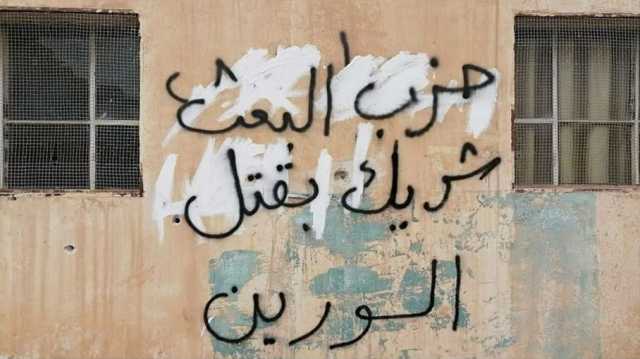 حزب البعث
شريك بقتل
السورين